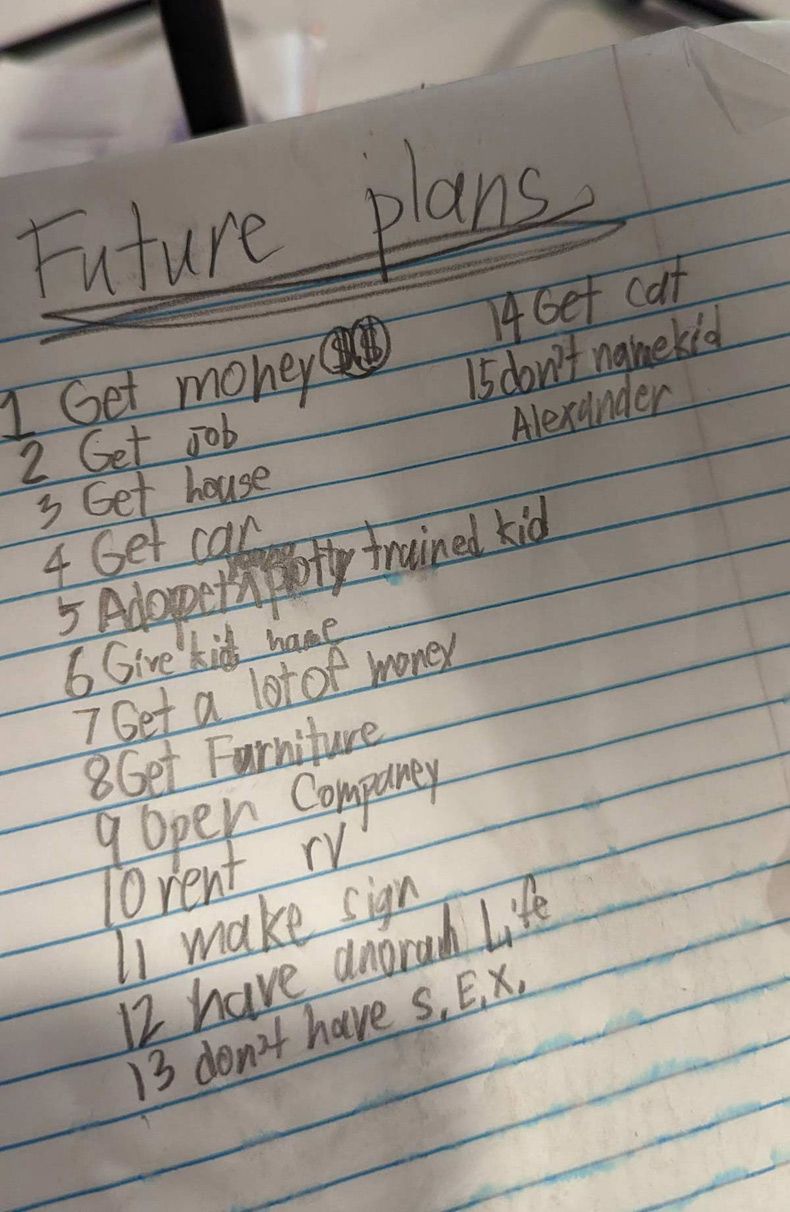 Future plans
1 Get money $$
2 Get Job
3 Get house
4 Get car
5 Adopet potty trained kid
6 Give kid name
7 Get a lot of money
8 Get Furniture
9 Open Companey
10 rent rv
11 make sign
12 have Life
13 don't have S.E.X.
14 Get cat
15 don't name kid
Alexander